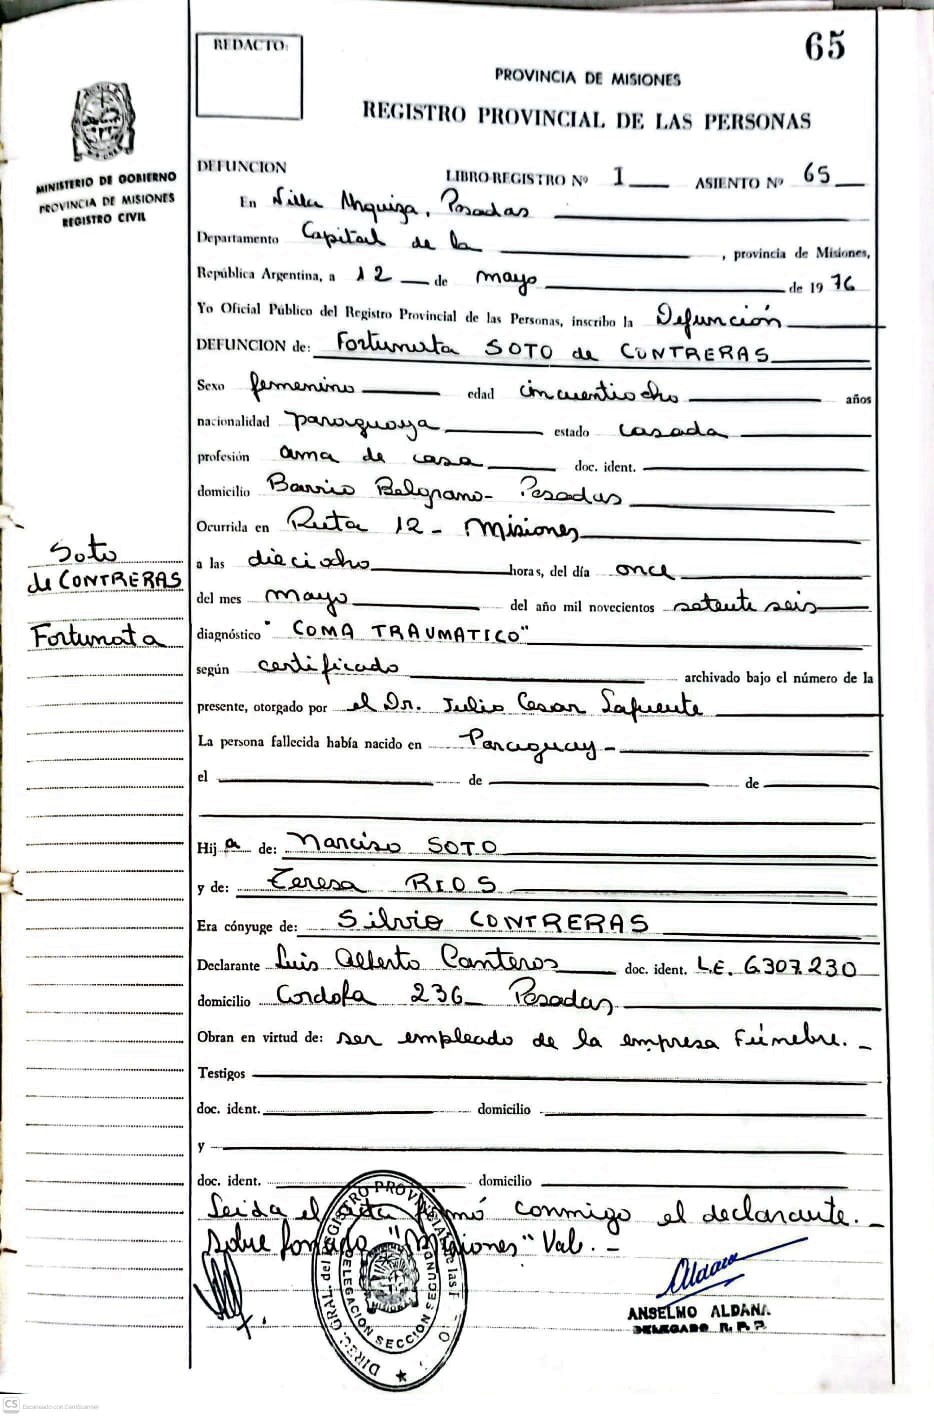 65
REDACTO:
PROVINCIA DE MISIONES
REGISTRO PROVINCIAL DE LAS PERSONAS
MINISTERIO DE GOBIERNO
PROVINCIA DE MISIONES
REGISTRO CIVIL
DEFUNCION LIBRO-REGISTRO Nº 1 ASIENTO Nº 65
En Villa Urquiza, Posadas
Departamento Capital de la , provincia de Misiones,
República Argentina, a 12 de mayo de 19 76
Yo Oficial Público del Registro Provincial de las Personas, inscribo la Defunción
DEFUNCION de: Fortunata SOTO de CONTRERAS
Sexo femenino edad cincuentiocho años
nacionalidad paraguaya estado casada
profesión ama de casa doc. ident.
domicilio Barrio Belgrano - Posadas
Ocurrida en Ruta 12 - Misiones
a las dieciocho horas, del día once
del mes mayo del año mil novecientos setente seis
diagnóstico "COMA TRAUMATICO"
según certificado archivado bajo el número de la
presente, otorgado por el Dr. Julio Cesar Lafuente
La persona fallecida había nacido en Paraguay -
el de de
Hij a de: Narciso SOTO
y de: Teresa RIOS
Era cónyuge de: Silvio CONTRERAS
Declarante Luis Alberto Canteros doc. ident. L.E. 6307.230
domicilio Cordoba 236 - Posadas
Obran en virtud de: ser empleado de la empresa Fúnebre. -
Testigos
doc. ident. domicilio
y
doc. ident. domicilio
Leida el acta firmó conmigo el declarante. -
Sobre "Misiones" Vale. -
Soto
de CONTRERAS
Fortunata
DIREC. GRAL. del REGISTRO PROVINCIAL de las
DELEGACION SECCION SEGUNDA
ANSELMO ALDANA
DELEGADO R. P. P.
CS Escaneado con CamScanner